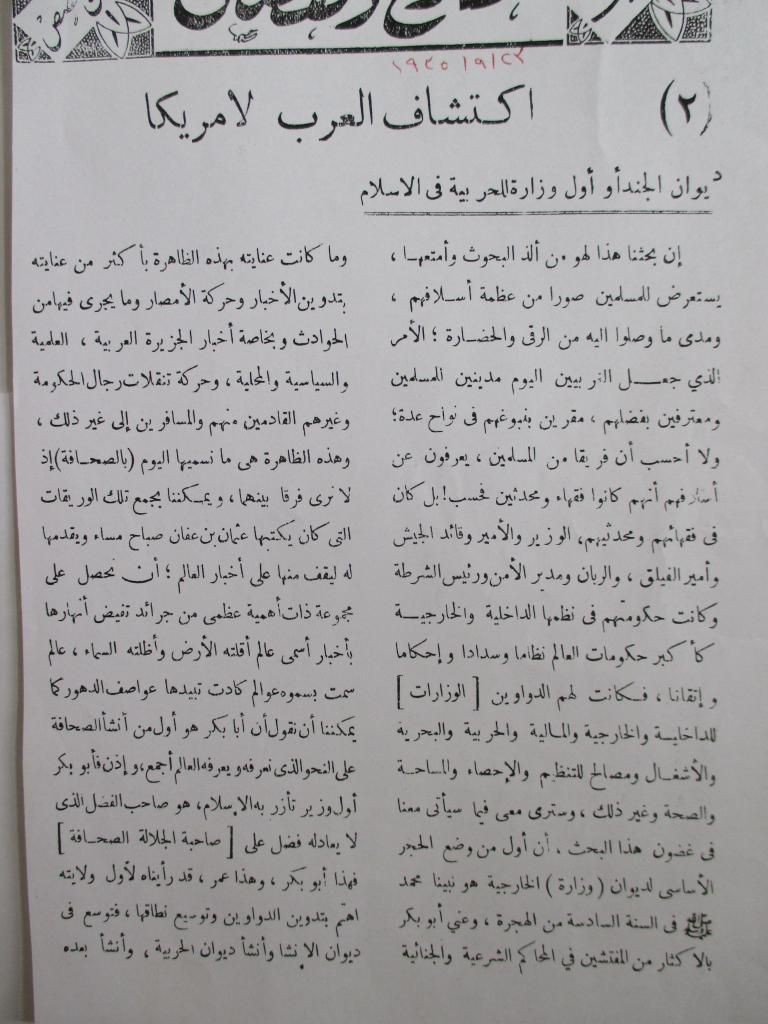 ١٩٣٥/٩/٢٣
(٢) اكتشاف العرب لامريكا
ديوان الجند أو أول وزارة للحربية فى الاسلام
إن بحثنا هذا لهو من ألذ البحوث وأمتعها ،
يستعرض للمسلمين صورا من عظمة أسلافهم ،
ومدى ما وصلوا اليه من الرقى والحضارة ؛ الأمر
الذي جعل الغربيين اليوم مدينين للمسلمين
ومعترفين بفضلهم ، مقرين بنبوغهم فى نواح عدة ؛
ولا أحسب أن فريقا من المسلمين ، يعرفون عن
أسلافهم أنهم كانوا فقهاء ومحدثين فحسب ! بل كان
فى فقهائهم ومحدثيهم، الوزير والأمير وقائد الجيش
وأمير الفيلق ، والربان ومدير الأمن ورئيس الشرطة
وكانت حكومتهم فى نظمها الداخلية والخارجية
كأكبر حكومات العالم نظاما وسدادا وإحكاما
وإتقانا ، فكانت لهم الدواوين [ الوزارات ]
للداخلية والخارجية والمالية والحربية والبحرية
والأشغال ومصالح للتنظيم والإحصاء والمساحة
والصحة وغير ذلك ، وسترى معى فيما سيأتى معنا
فى غضون هذا البحث ، أن أول من وضع الحجر
الأساسى لديوان ( وزارة ) الخارجية هو نبينا محمد
ﷺ فى السنة السادسة من الهجرة ، وعني أبو بكر
بالاكثار من المفتشين في المحاكم الشرعية والجنائية
وما كانت عنايته بهذه الظاهرة بأكثر من عنايته
بتدوين الأخبار وحركة الأمصار وما يجرى فيها من
الحوادث وبخاصة أخبار الجزيرة العربية ، العلمية
والسياسية والمحلية ، وحركة تنقلات رجال الحكومة
وغيرهم القادمين منهم والمسافرين إلى غير ذلك ،
وهذه الظاهرة هى ما نسميها اليوم (بالصحافة) إذ
لا نرى فرقا بينهما ، ويمكننا بجمع تلك الوريقات
التى كان يكتبها عثمان بن عفان صباح مساء ويقدمها
له ليقف منها على أخبار العالم ؛ أن نحصل على
مجموعة ذات أهمية عظمى من جرائد تفيض أنهارها
بأخبار أسمى عالم أقلته الأرض وأظلته السماء ، عالم
سمت بسموه عوالم كادت تبيدها عواصف الدهور كما
يمكننا أن نقول أن أبا بكر هو أول من أنشأ الصحافة
على النحو الذى نعرفه ويعرفه العالم أجمع ، وإذن فأبو بكر
أول وزير تأزر به الإسلام، هو صاحب الفضل الذى
لا يعادله فضل على [ صاحبة الجلالة الصحافة ]
فهذا أبو بكر ، وهذا عمر ، قد رأيناه لأول ولايته
اهتم بتدوين الدواوين وتوسيع نطاقها ، فتوسع فى
ديوان الإنشا وأنشأ ديوان الحربية ، وأنشأ بعده